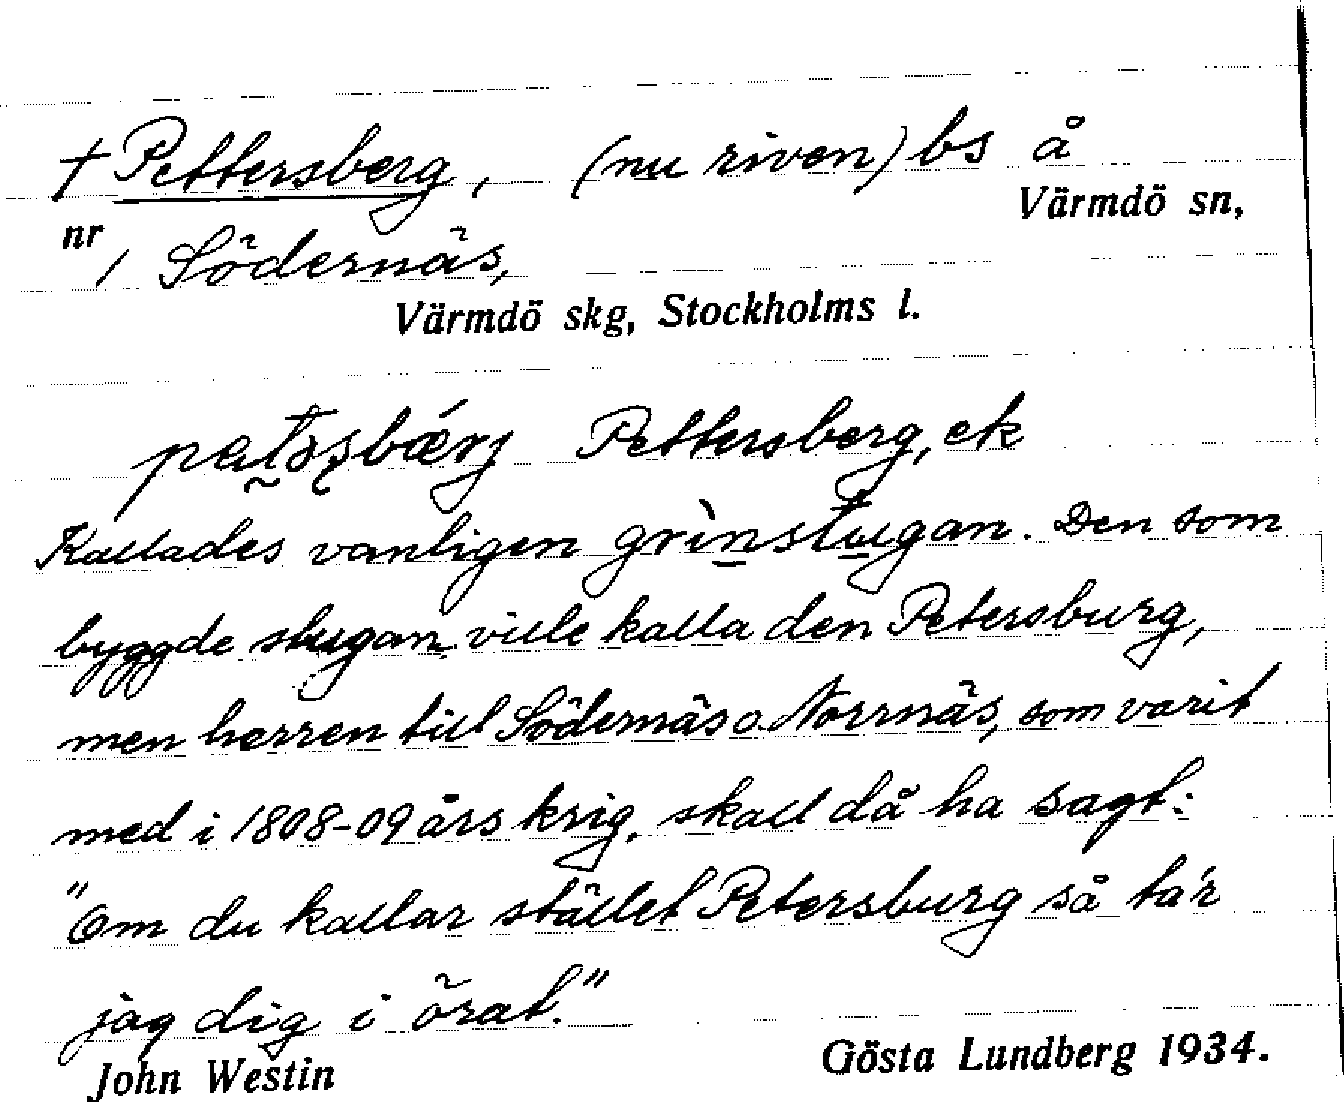 † Pettersberg, (nu riven) bs å
Värmdö sn,
nr 1 Södernäs,
Värmdö skg, Stockholms l.
Pettersberg, ek
Kallades vanligen grìnstugan. Den som
byggde stugan ville kalla den Petersburg,
men herren till Södernäs o. Norrnäs, som varit
med i 1808-09 års krig, skall då ha sagt:
"Om du kallar stället Petersburg så ta'r
jag dig i örat."
John Westin
Gösta Lundberg 1934.